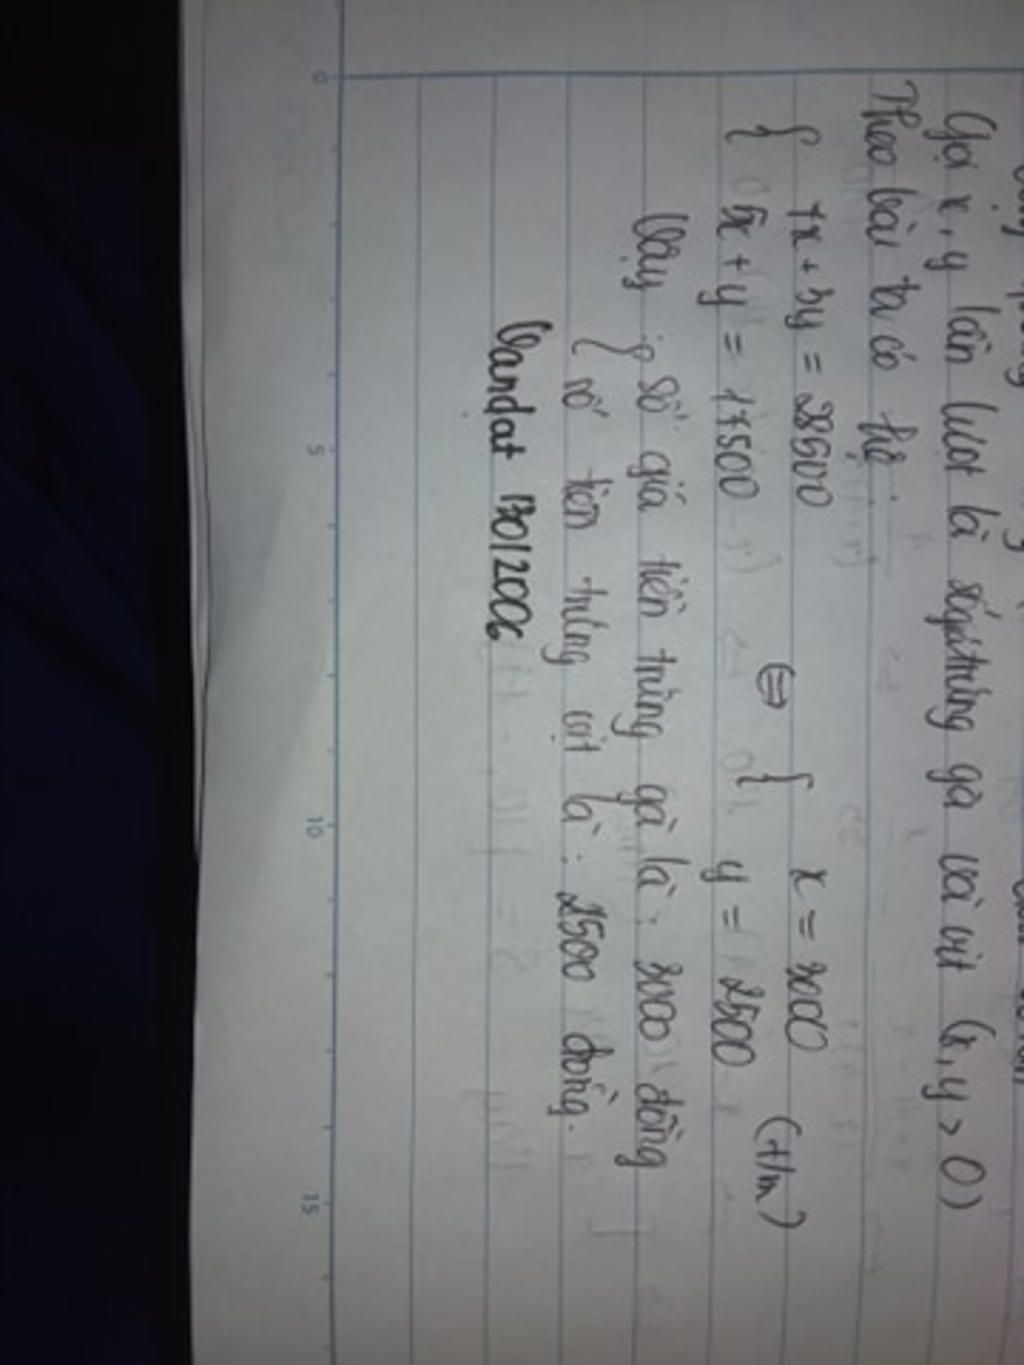 Gọi x, y lần lượt là số giá trứng gà và vịt (x, y > 0)
Theo bài ta có hệ:
{ 7x + 3y = 28500 <=> { x = 3000
{ 5x + y = 17500 { y = 2500 (t/m)
Vậy { số giá tiền trứng gà là: 3000 đồng
{ số tiền trứng vịt là: 2500 đồng.
Vandat 13012006
0 5 10 15